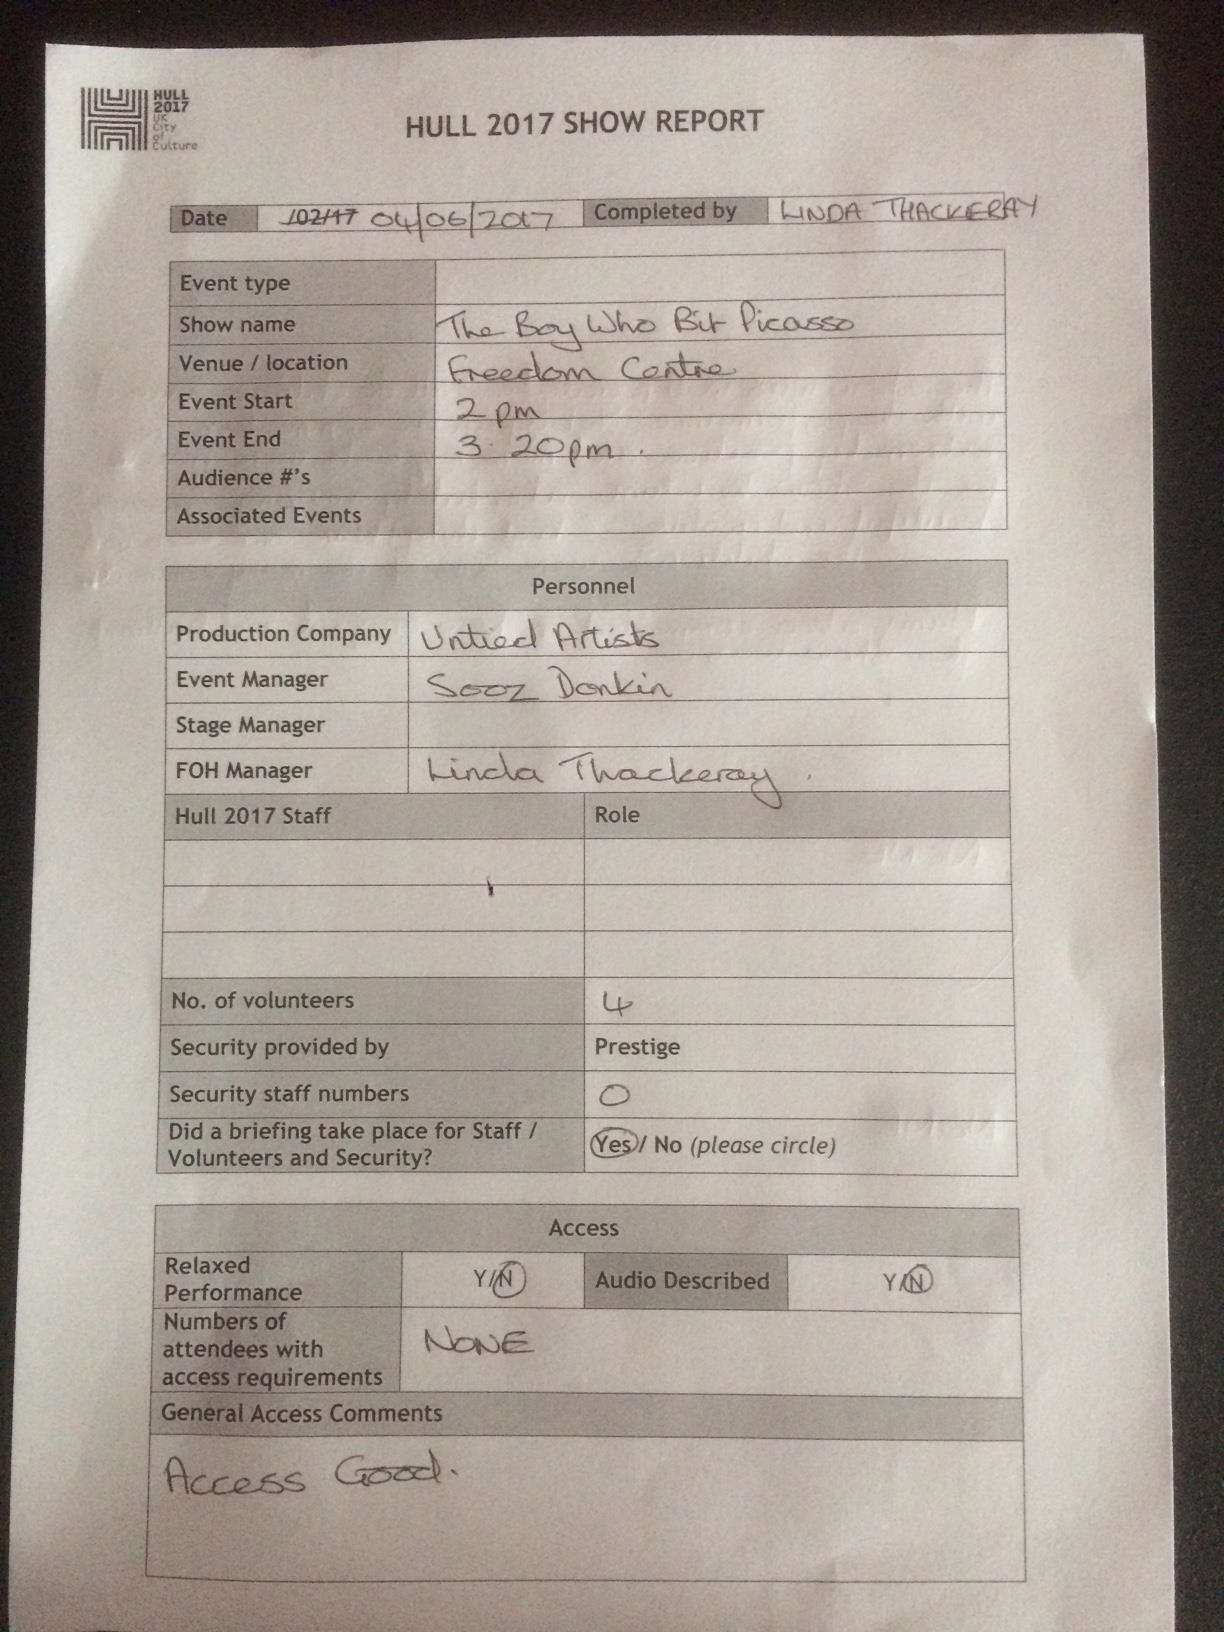 HULL
2017
UK
City
of
Culture
HULL 2017 SHOW REPORT
Date /02/17 04/06/2017 Completed by LINDA THACKERAY
Event type
Show name The Boy Who Bit Picasso
Venue / location Freedom Centre
Event Start 2 pm
Event End 3.20pm.
Audience #'s
Associated Events
Personnel
Production Company Untied Artists
Event Manager Sooz Donkin
Stage Manager
FOH Manager Linda Thackeray.
Hull 2017 Staff Role
No. of volunteers 4
Security provided by Prestige
Security staff numbers 0
Did a briefing take place for Staff /
Volunteers and Security? Yes / No (please circle)
Access
Relaxed
Performance Y/N Audio Described Y/N
Numbers of
attendees with
access requirements NONE
General Access Comments
Access Good.